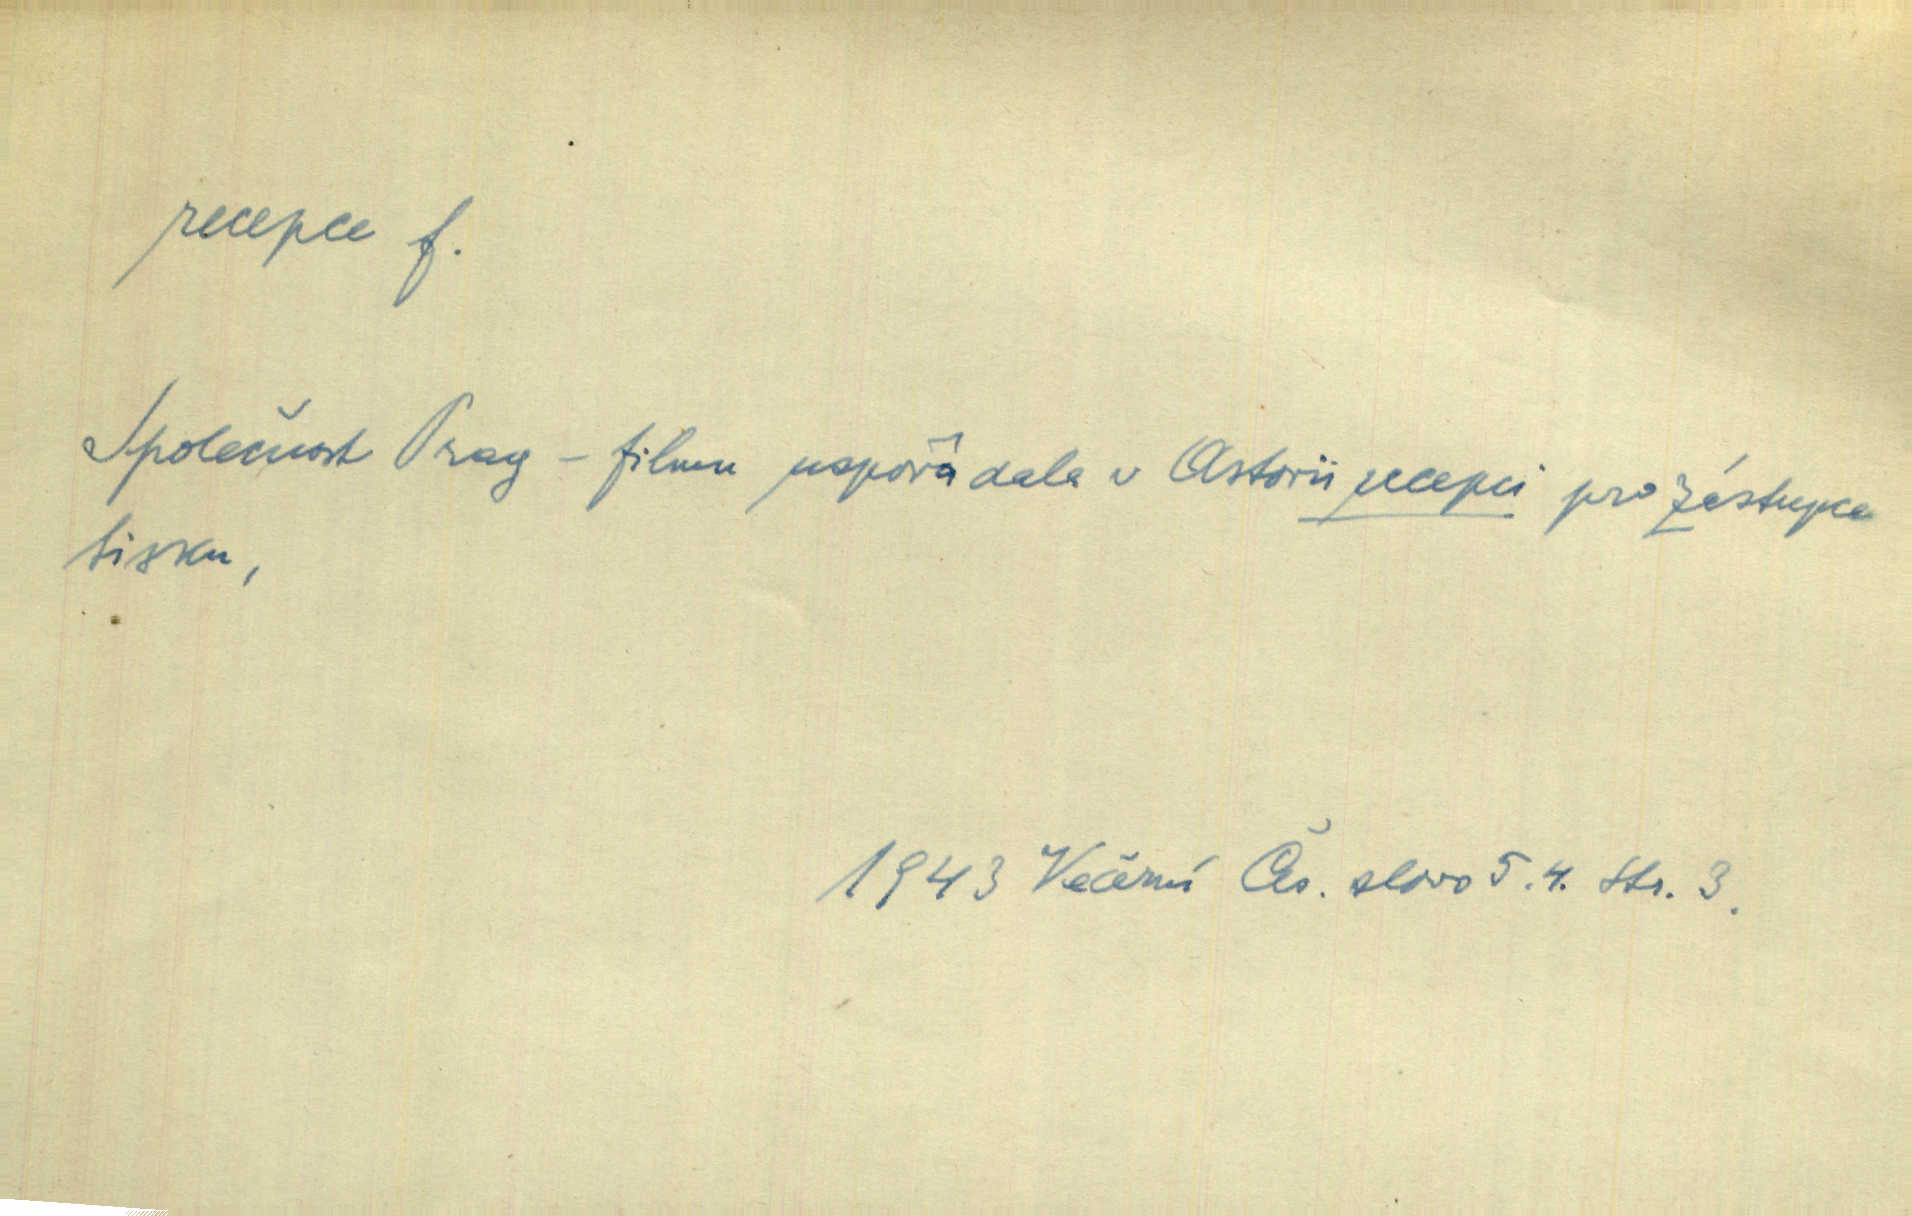 recepce f.
Společnost Prag - filmu uspořádala v Astorii recepci pro zástupce
tisku,
1943 Večerní Čes. slovo 5.4. str. 3.